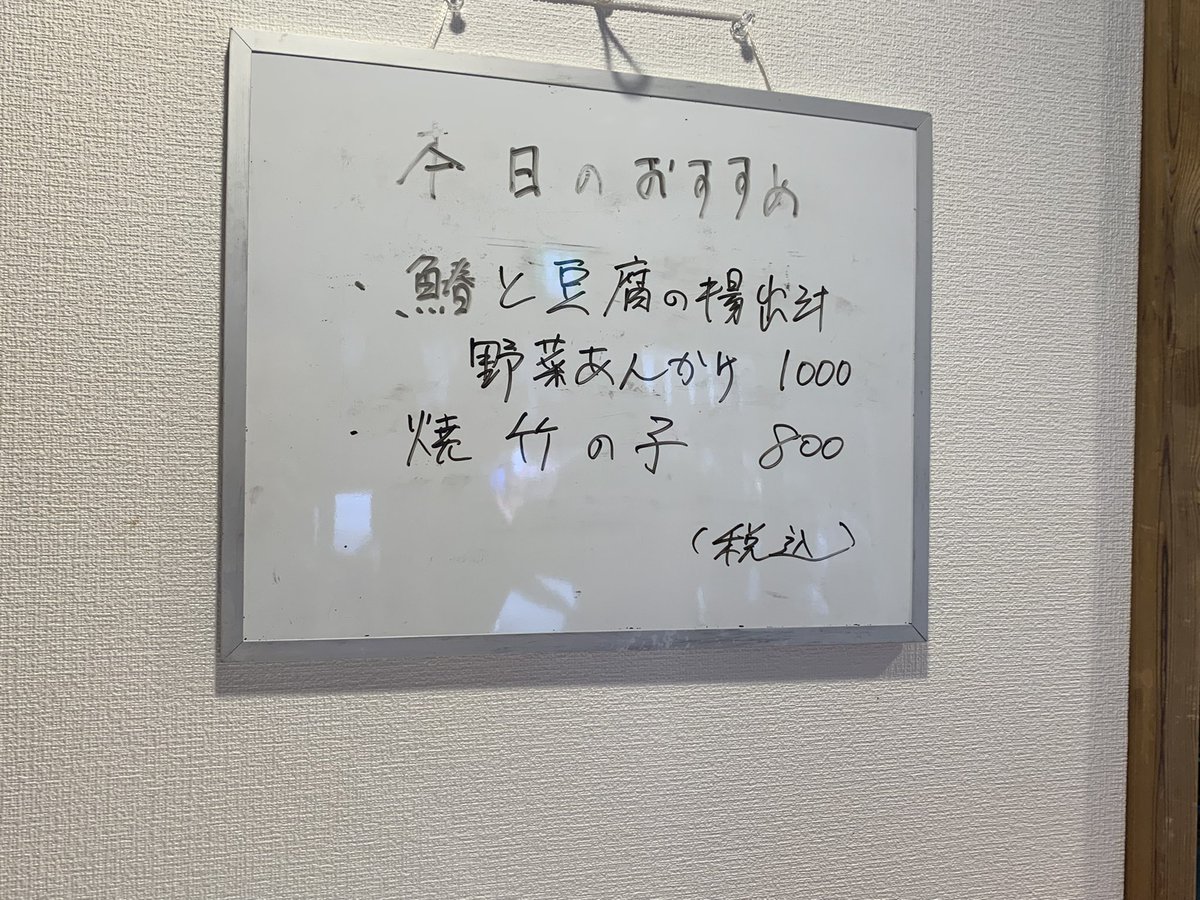 本日のおすすめ
・鰆と豆腐の揚出汁
野菜あんかけ 1000
・焼竹の子 800
(税込)